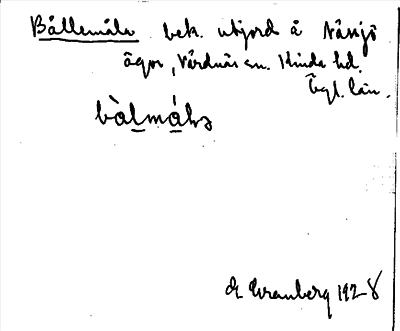 Bållemåla bek. utjord å Nässjö
ägor, Vårdnäs sn. Kinda hd.
Ögl. län.
bàlmála
E. Granberg 1928